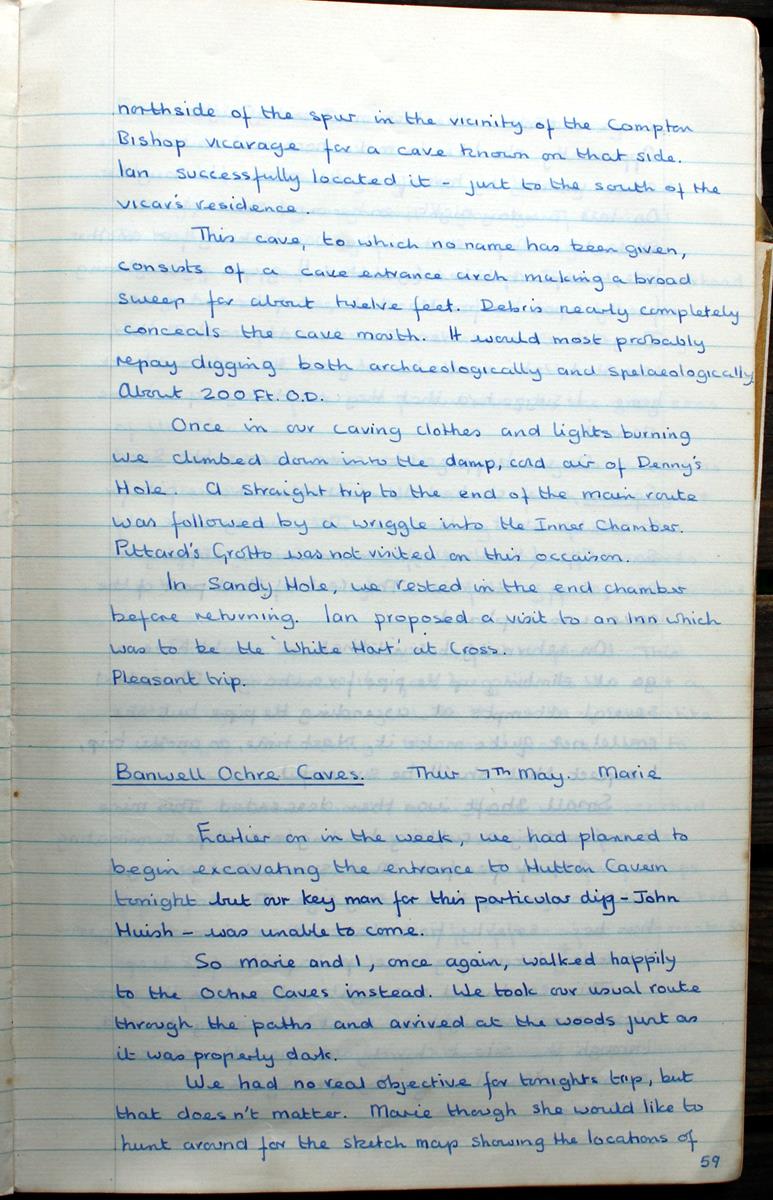 northside of the spur in the vicinity of the Compton
Bishop vicarage for a cave known on that side.
Ian successfully located it - just to the south of the
vicar's residence.
This cave, to which no name has been given,
consists of a cave entrance arch making a broad
sweep for about twelve feet. Debris nearly completely
conceals the cave mouth. It would most probably
repay digging both archaeologically and spelaeologically.
About 200 Ft. O.D.
Once in our caving clothes and lights burning
we climbed down into the damp, cold air of Denny's
Hole. A straight trip to the end of the main route
was followed by a wriggle into the Inner Chamber.
Pittard's Grotto was not visited on this occaison.
In Sandy Hole, we rested in the end chamber
before returning. Ian proposed a visit to an Inn which
was to be the 'White Hart' at Cross.
Pleasant trip.
Banwell Ochre Caves. Thur 7TH May. Marie
Earlier on in the week, we had planned to
begin excavating the entrance to Hutton Cavern
tonight but our key man for this particular dig - John
Huish - was unable to come.
So marie and I, once again, walked happily
to the Ochre Caves instead. We took our usual route
through the paths and arrived at the woods just as
it was properly dark.
We had no real objective for tonights trip, but
that does n't matter. Marie though she would like to
hunt around for the sketch map showing the locations of
59